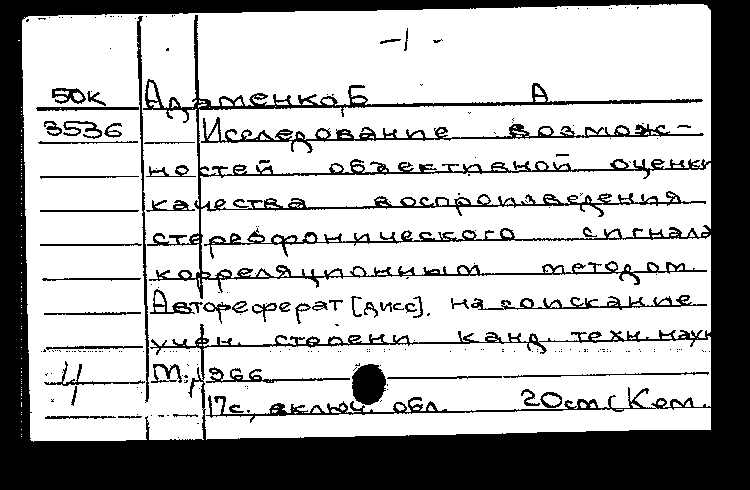 -1-
50к Адаменко, Б А
3536 Иследование возмож-
ностей объективной оценки
качества воспроизведения
стереофонического сигнала
корреляционным методом.
Автореферат [дисс]. на соискание
учен. степени канд. техн. наук
М., 1966.
4 17с., включ. обл. 20см (Ком.